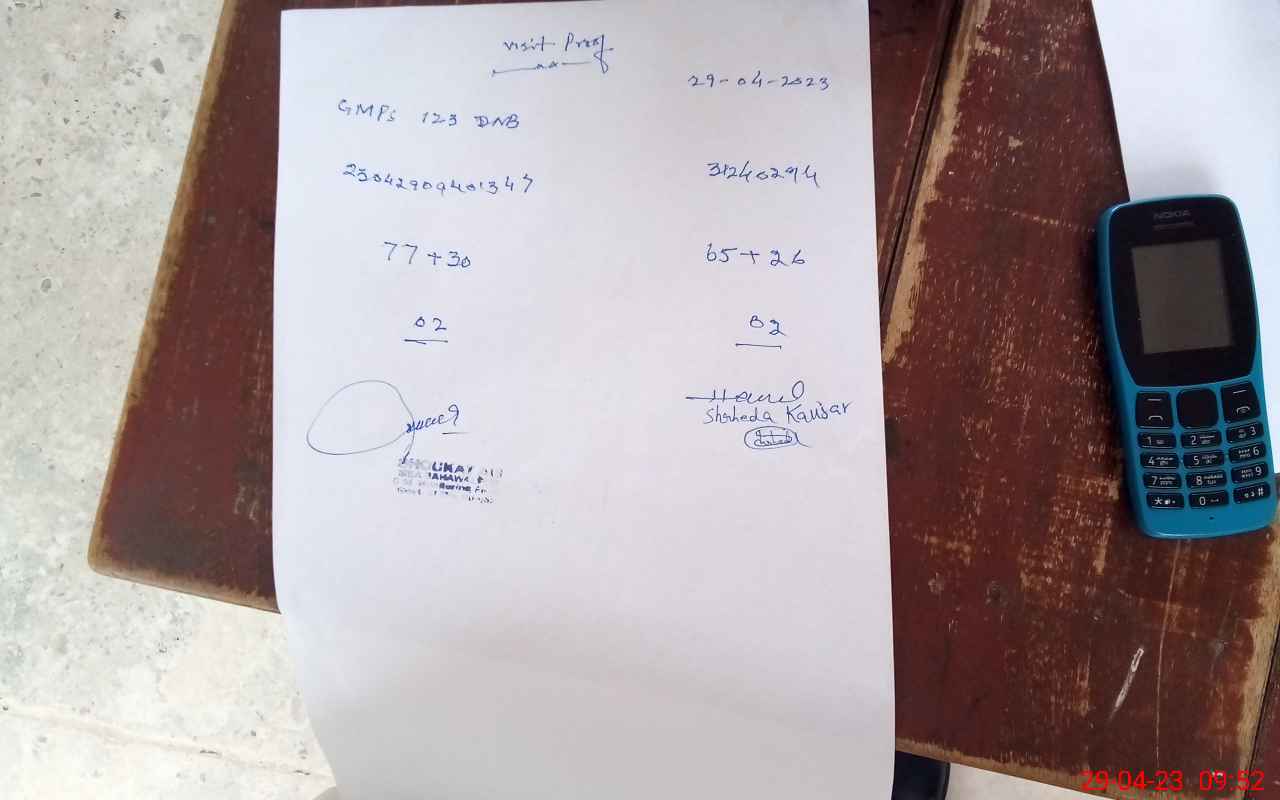 visit Proof
29-04-2023
GMPS 123 DNB
23042909401347
31240294
77+30
65+26
02
02
Shaheda Kausar
NOKIA
29-04-23 09:52